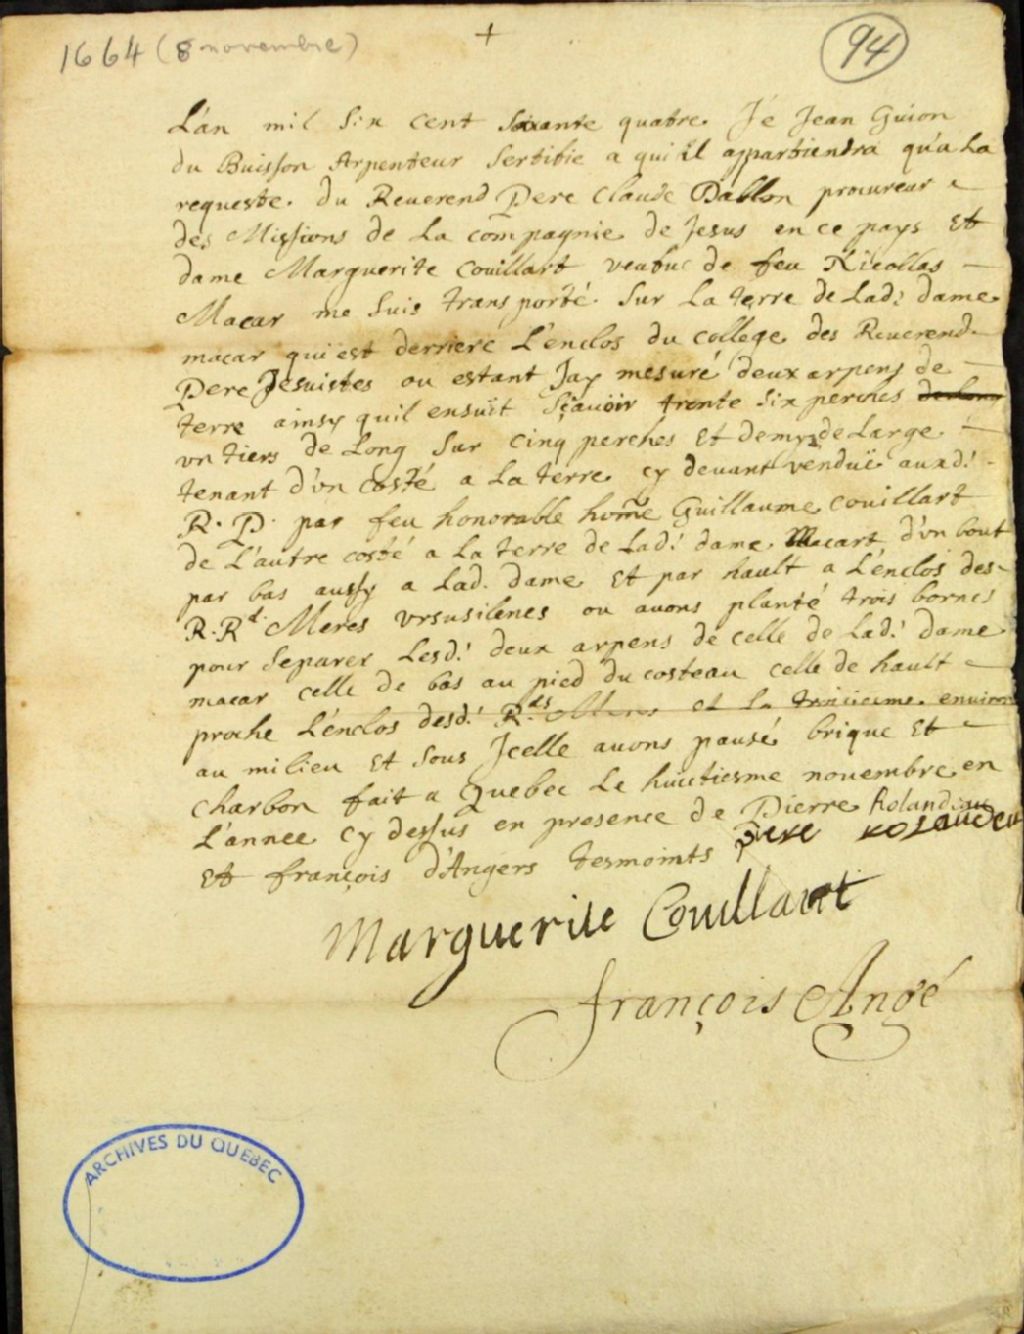 1664 (8 novembre)
+
94
L'an mil six cent soixante quatre. Jé Jean Guion
du Buisson Arpenteur Sertifie a qui il appartiendra qu'a La
requeste. du Reuerend Pere Claude Dablon procureur
des Missions de La compagnie de Jesus en ce pays Et
dame Marguerite Couillart veufue de feu Nicollas
Macar me suis transporté sur La terre de Lad. dame
macar qui est derriere L'enclos du college des Reuerend
Pere Jesuistes ou estant Jay mesuré deux arpens de
terre ainsy quil ensuit Sçauoir trente six perches
vn tiers de Long sur cinq perches Et demye de Large
tenant d'vn costé a La terre cy deuant venduë auxd.
R. P. par feu honorable home Guillaume Couillart
de L'autre costé a La terre de Lad. dame Macart d'vn bout
par bas aussy a Lad. dame Et par hault a L'enclos des
R. Rd. Meres vrsusilenes ou auons planté trois bornes
pour Separer Lesd. deux arpens de celle de Lad. Dame
macar celle de bas au pied du costeau celle de hault
proche L'enclos desd. R.des Meres et La troisiesme enuiron
au milieu Et sous Jcelle auons pausé brique Et
charbon fait a Quebec Le huictiesme nouembre en
L'annee Cy dessus en presence de Pierre Rolandeau
Et françois d'Angers tesmoints
Marguerite Couillart
françois Angé
ARCHIVES DU QUEBEC